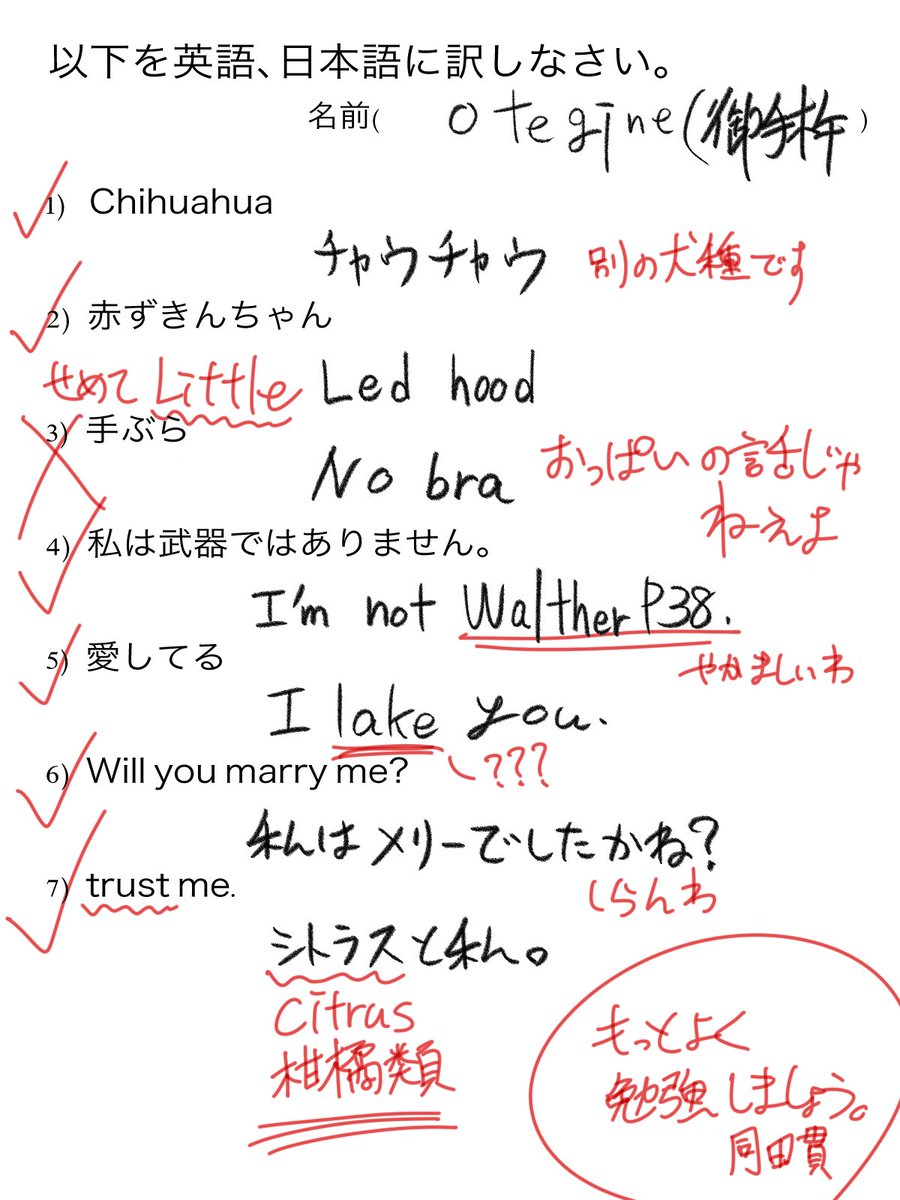 以下を英語、日本語に訳しなさい。
名前( Otegine(御手杵 )
1) Chihuahua
チャウチャウ 別の犬種です
2) 赤ずきんちゃん
せめてLittle Led hood
3) 手ぶら
No bra おっぱいの話じゃ
ねえよ
4) 私は武器ではありません。
I'm not Walther P38.
やかましいわ
5) 愛してる
I lake you.
???
6) Will you marry me?
私はメリーでしたかね?
しらんわ
7) trust me.
シトラスと私。
Citrus
柑橘類
もっとよく
勉強しましょう。
同田貫